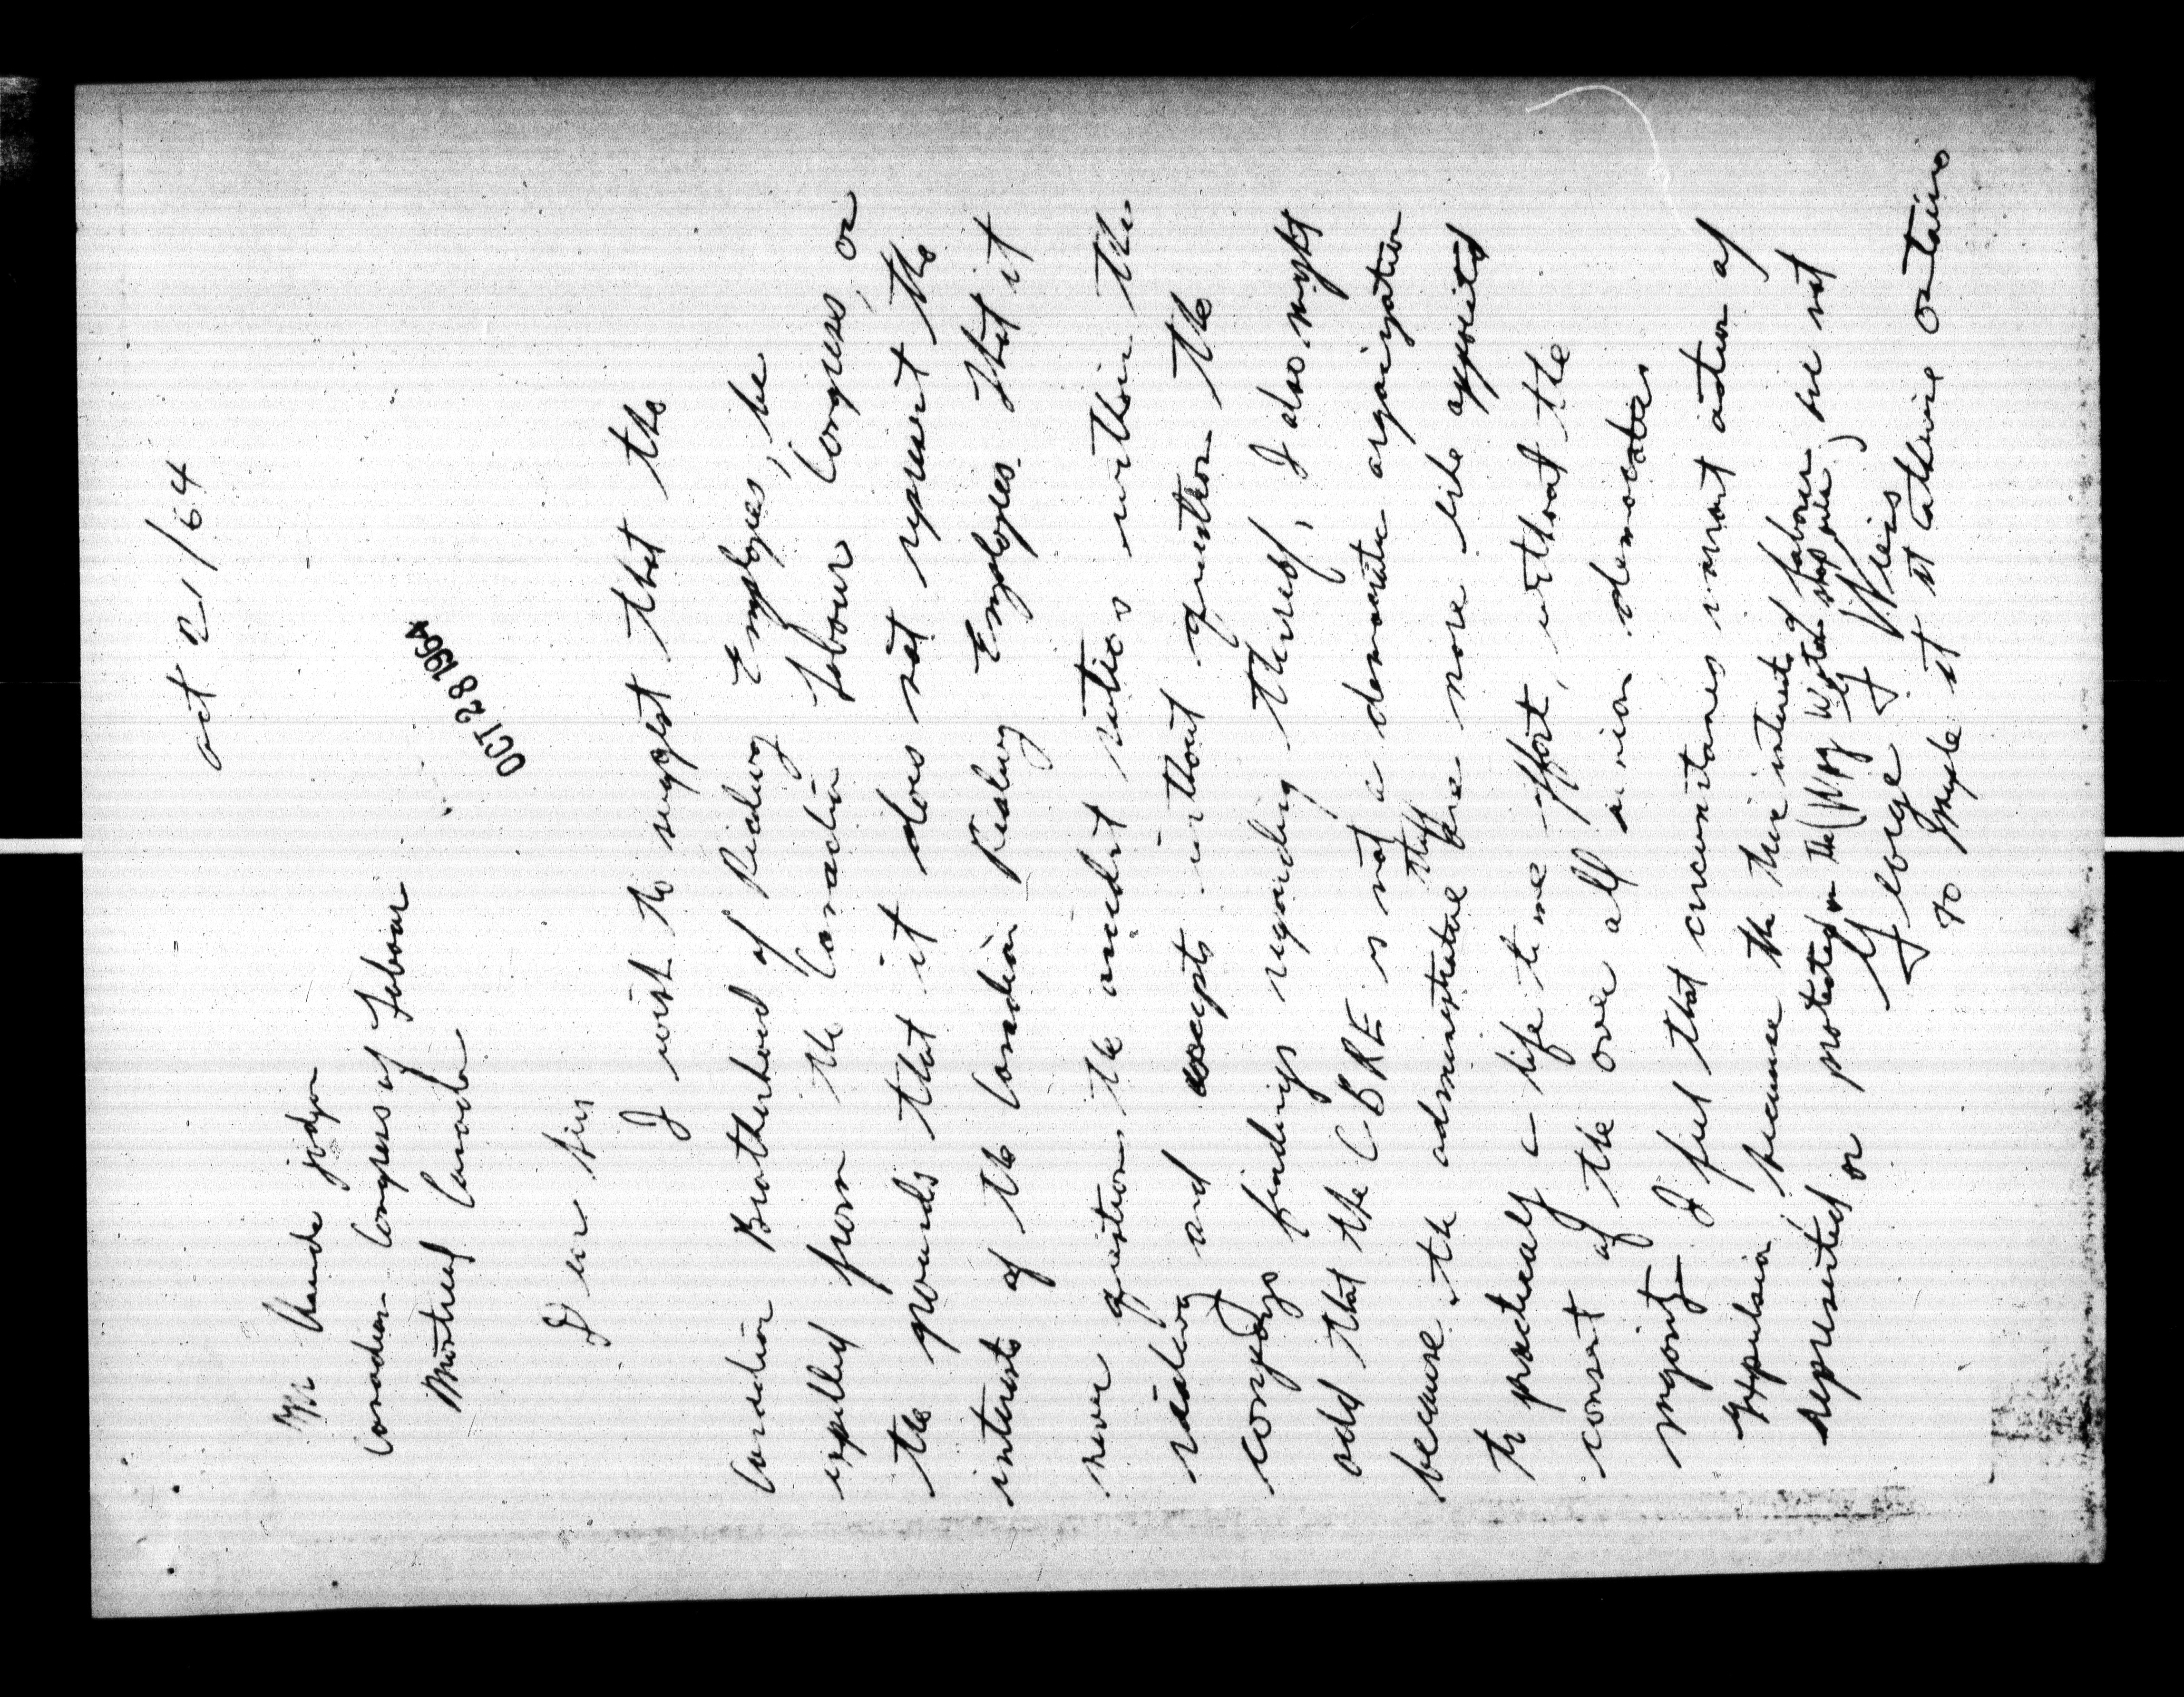 Oct 21/64
Mr Claude Jodoin
Canadian Congress of Labour
Montreal Canada
OCT 28 1964
Dear Sir
I wish to suggest that the
Canadian Brotherhood of Railway Employees, be
expelled from the Canadian Labour Congress, on
the grounds that it does not represent the
interests of the Canadian Railway Employees. That it
never questions the accident ratios within the
railway and accepts without question the
companys findings regarding thereof, I also might
add that the CBRE is not a democratic organization
because the administrative staff are more like appointed
to practicaly a life time effort, without the
consent of the over all union democrates
majority I feel that circumstances warrant action of
Expulsion because the the interests of labour are not
represented or protected in the (Wpg
George
70 Maple st st Catharine Ontario